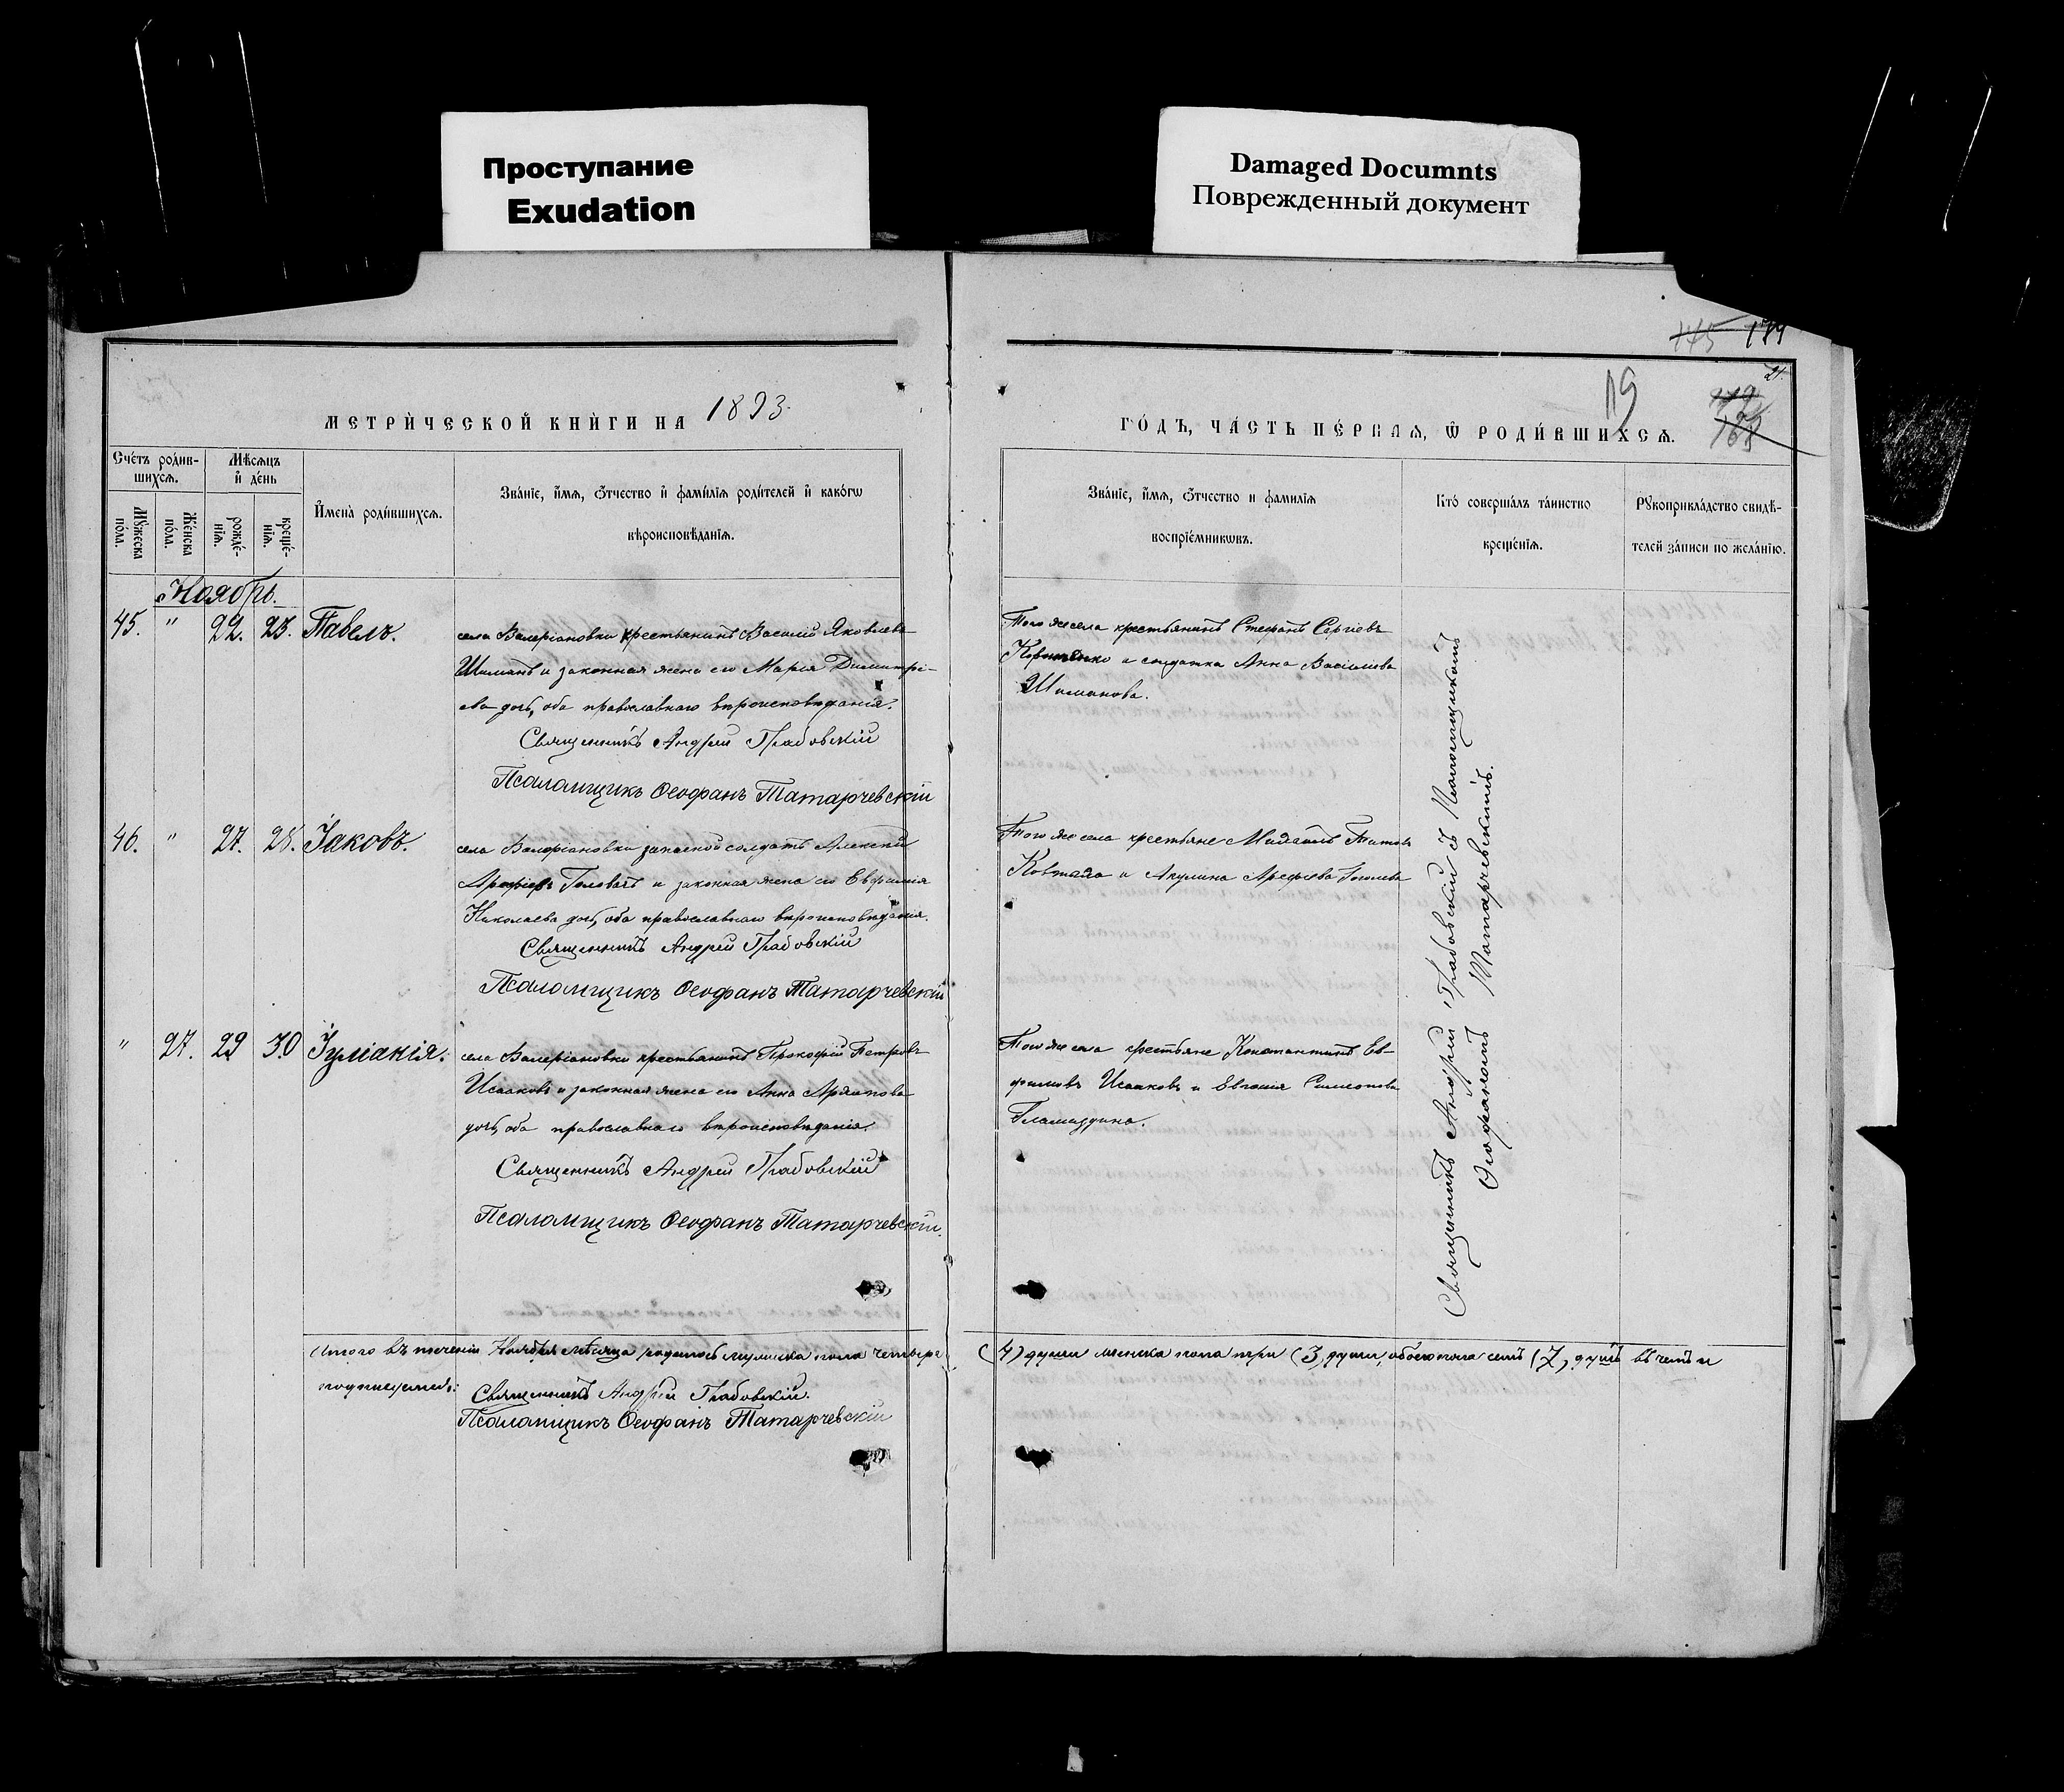 Проступание
Exudation
Damaged Documnts
Поврежденный документ
145 179
21.
19
МЕТРИ́ЧЕСКОЙ КНИ́ГИ НА 1893.
ГО́ДЪ, ЧА́СТЬ ПЕ́РВАѦ, Ѿ РОДИ́ВШИХСѦ.
Сче́тъ роди́в-
шихсѧ.
Мѣсѧцъ
и҆ де́нь
Мꙋжеска
по́ла.
Же́нска
по́ла.
рожде́-
нїѧ.
креще́-
нїѧ.
И҆мена̀ роди́вшихсѧ.
Зва́нїе, и҆́мѧ, ѻ҆́тчество и҆ фами́лїѧ роди́телей и҆ како́гѡ
вѣроисповѣ́данїѧ.
Зва́нїе, и҆́мѧ, ѻ҆́тчество и фами́лїѧ
воспрїе́мникѡвъ.
Кто̀ соверша́лъ та́инство
креще́нїѧ.
Рꙋкоприкла́дство свидѣ́-
телей за́писи по жела́нїю.
Ноябрь.
45. " 22. 23. Павелъ.
села Валеріановки крестьянинъ Василій Яковлевъ
Шиманъ и законная жена его Марія Димитрі-
ева дочь, оба православнаго вѣроисповѣданія.
Священникъ Андрей Грабовскій
Псаломщикъ Ѳеофанъ Татарчевскій
Того же села крестьянинъ Стефанъ Сергіевъ
и солдатка Анна Васіліева
Шиманова.
46. " 27. 28. Іаковъ.
села Валеріановки запасной солдатъ Алексѣй
Арефіевъ Головачъ и законная жена его Евфимія
Николаева дочь, оба православнаго вѣроисповѣданія.
Священникъ Андрей Грабовскій
Псаломщикъ Ѳеофанъ Татарчевскій
Того же села крестьяне Михаилъ Титовъ
и Акулина Арефіева
" 27. 29 30 Іуліакія.
села Валеріановки крестьянинъ Прокофій Петровъ
Исааковъ и законная жена его Анна
дочь, оба православнаго вѣроисповѣданія.
Священникъ Андрей Грабовскій
Псаломщикъ Ѳеофанъ Татарчевскій.
Того же села крестьяне Константинъ Ев-
фимовъ Исааковъ и Евгенія Симеонова
Гламаздина.
Священникъ Андрей Грабовскій съ Псаломщикомъ
Ѳеофаномъ Татарчевскимъ.
Итого въ теченіи Ноября мѣсяца родилось мужеска пола четыре (4) души женска пола три (3) души, обоего пола семь (7) душъ въ чемъ и
подписуемся:
Священникъ Андрей Грабовскій.
Псаломщикъ Ѳеофанъ Татарчевскій